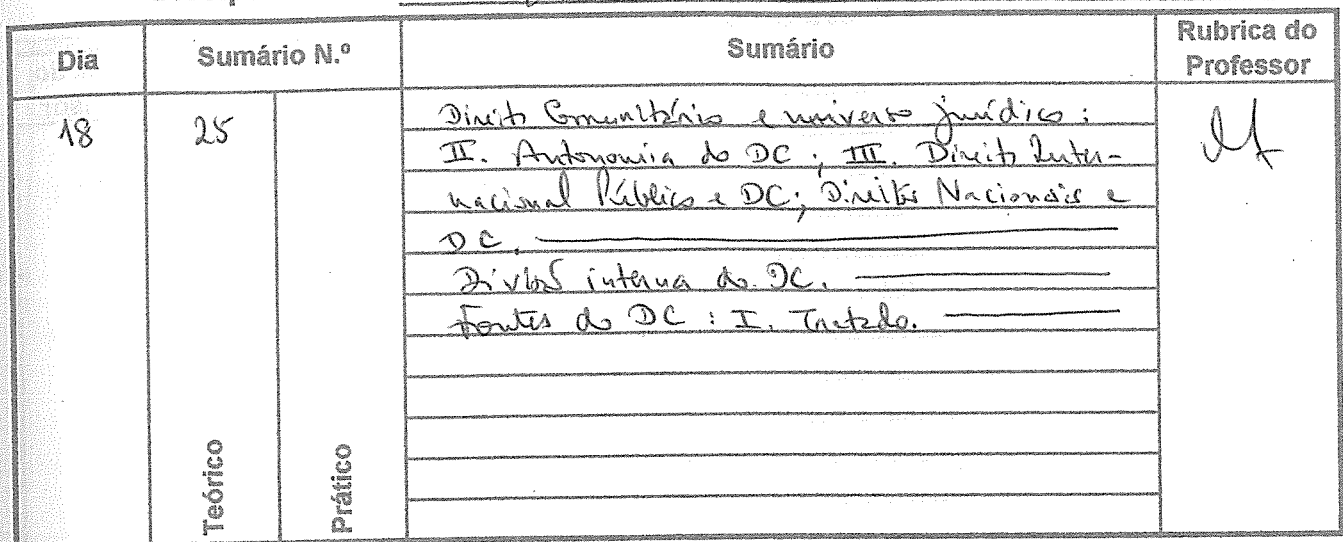 Dia Sumário N.º Sumário Rubrica do Professor
18 25
Direito Comunitário e universo jurídico:
II. Autonomia do DC; III. Direito Inter-
nacional Público e DC; Direitos Nacionais e
DC.
Divisão interna do DC.
Fontes do DC: I. Tratado.
Teórico Prático